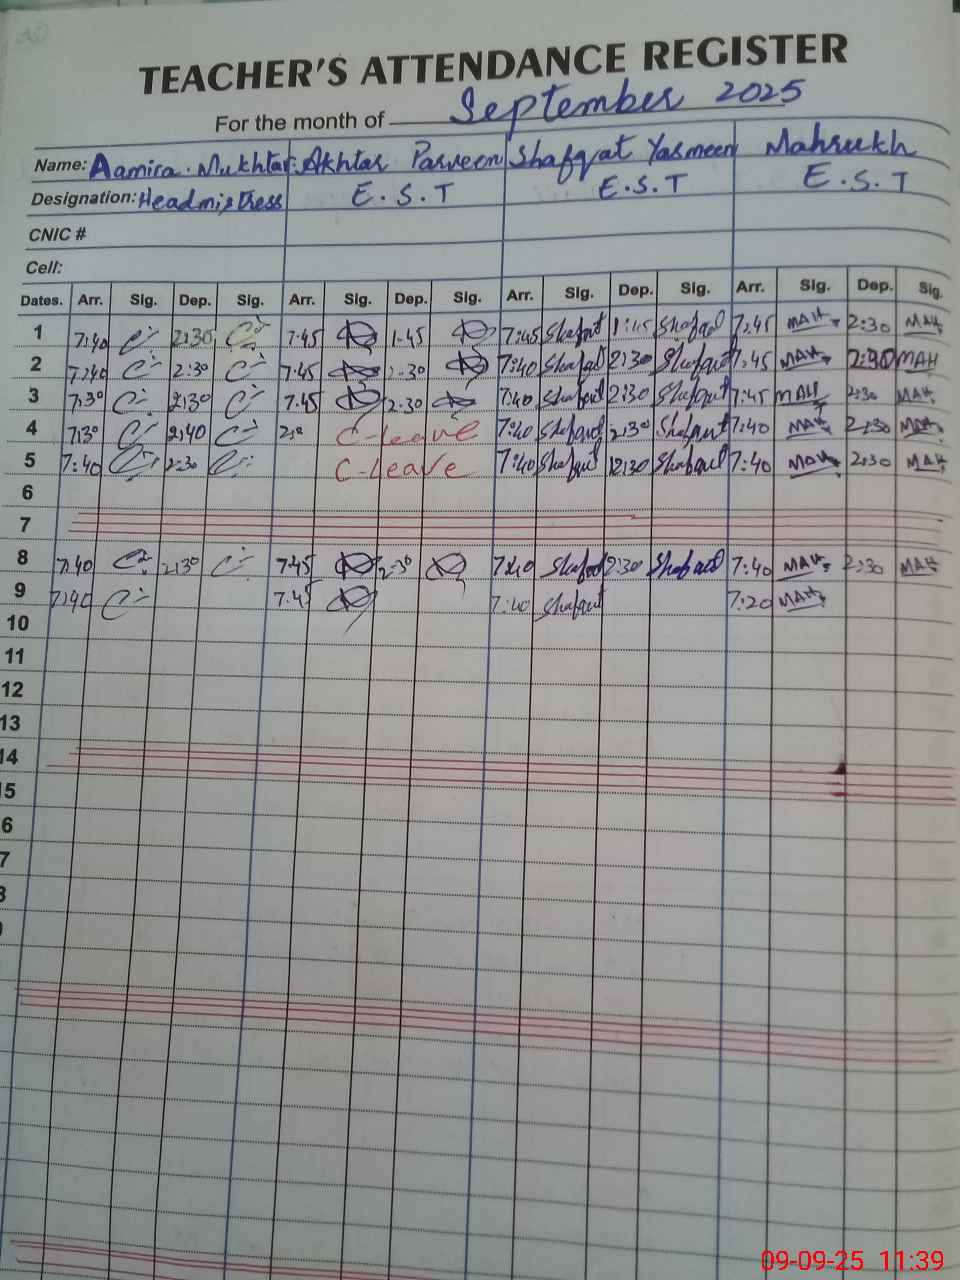 TEACHER'S ATTENDANCE REGISTER
For the month of September 2025
Name: Aamira. Mukhtar. Akhtar Parveen Shafqat Yasmeen Mahrukh
Designation: Headmistress E.S.T E.S.T E.S.T
CNIC #
Cell:
Dates. Arr. Sig. Dep. Sig. Arr. Sig. Dep. Sig. Arr. Sig. Dep. Sig. Arr. Sig. Dep. Sig.
1 7:40 2:30 7:45 1-45 7:45 Shafqat 1:45 Shafqat 7:45 MAH 2:30 MAH
2 7:40 2:30 7:45 2-30 7:40 Shafqat 2:30 Shafqat 7:45 MAH 2:30 MAH
3 7:30 2:30 7:45 2-30 7:40 Shafqat 2:30 Shafqat 7:45 MAH 2:30 MAH
4 7:30 2:40 C-Leave 7:40 Shafqat 2:30 Shafqat 7:40 MAH 2:30 MAH
5 7:40 2:30 C-Leave 7:40 Shafqat 2:30 Shafqat 7:40 MAH 2:30 MAH
6
7
8 7:40 2:30 7:45 2-30 7:40 Shafqat 2:30 Shafqat 7:40 MAH 2:30 MAH
9 7:40 7:45 7:40 Shafqat 7:20 MAH
10
11
12
13
14
5
6
7
09-09-25 11:39